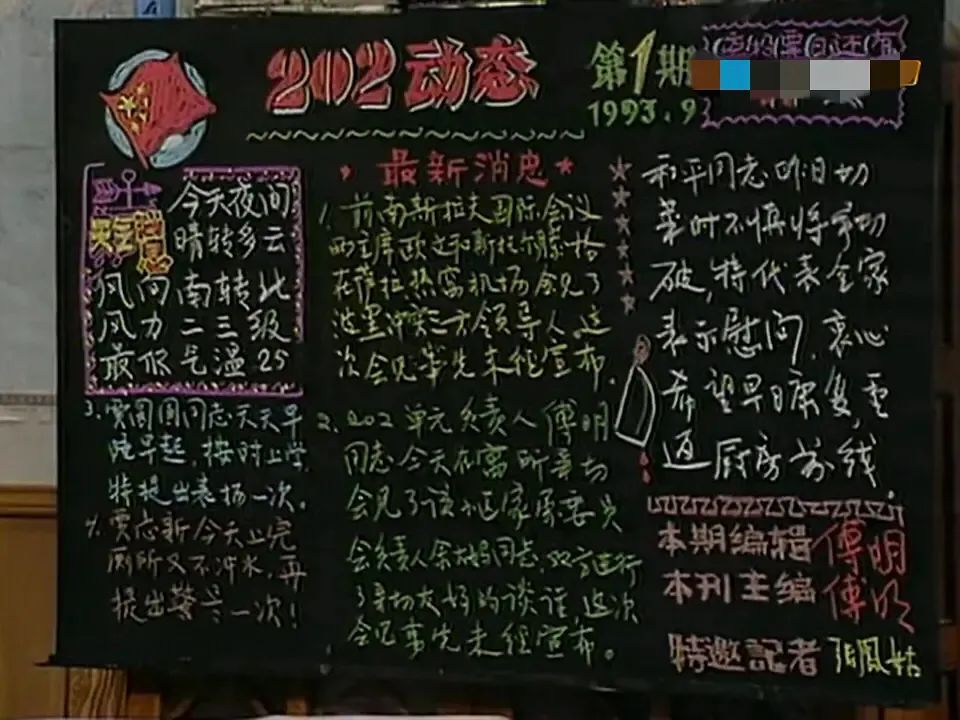 202动态
第1期
1993.9
今天夜间
晴转多云
风向南转北
风力二三级
最低气温25
3、贾圆圆同志天天早
睡早起,按时上学,
特提出表扬一次。
4、贾志新今天上完
厕所又不冲水,再
提出警告一次!
最新消息
1、前南斯拉夫国际会议
两主席欧文和斯托尔滕格
在萨拉热窝机场会见了
波黑冲突三方领导人,这
次会见事先未经宣布。
2、202单元负责人傅明
同志今天在寓所亲切
会见了该小区家属委员
会负责人余大妈同志,双方进行
了亲切友好的谈话 这次
会见事先未经宣布。
和平同志昨日切
菜时不慎将手切
破,特代表全家
表示慰问,衷心
希望早日康复重
返厨房前线。
本期编辑 傅明
本刊主编 傅明
特邀記者